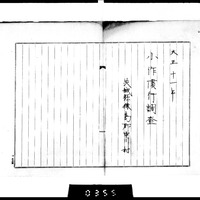 大正十一年
小作慣行調査
茨城縣鹿島郡
0355